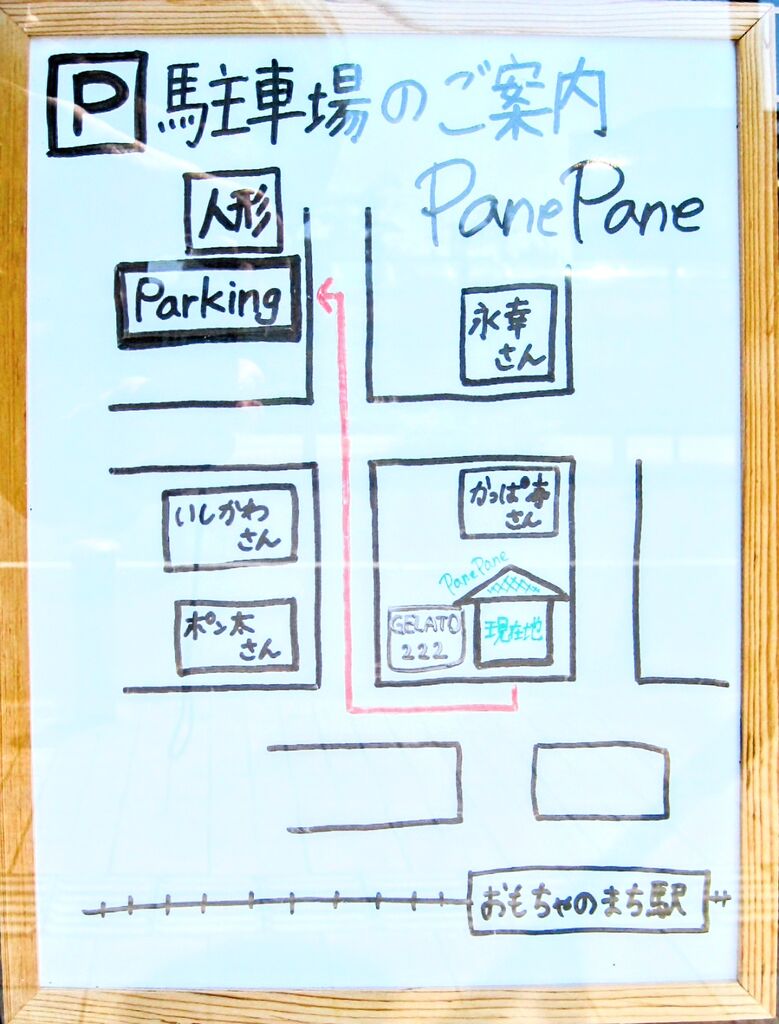 P 駐車場のご案内
PanePane
人形
Parking
永幸
さん
いしかわ
さん
かっぱ寿
さん
ポン太
さん
PanePane
GELATO
222
現在地
おもちゃのまち駅